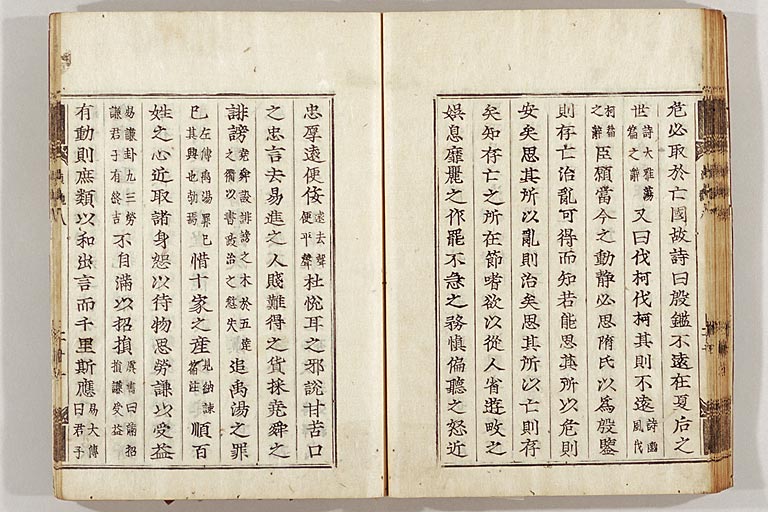 危必取於亡國故詩曰殷鑑不遠在夏后之
世詩大雅蕩篇之辭又曰伐柯伐柯其則不遠詩豳風伐
柯篇之辭臣願當今之動静必思隋氏以爲殷鑒
則存亡治亂可得而知若能思其所以危則
安矣思其所以亂則治矣思其所以亡則存
矣知存亡之所在節嗜欲以從人省遊畋之
娛息靡麗之作罷不急之務慎偏聽之怒近
忠厚遠便佞遠去聲便平聲杜悅耳之邪說甘苦口
之忠言去易進之人賤難得之貨採堯舜之
誹謗堯舜設誹謗之木於五達之衢以書政治之愆失追禹湯之罪
己左傳禹湯罪己其興也勃焉惜十家之産見納諫篇註順百
姓之心近取諸身恕以待物思勞謙以受益
易謙卦九三勞謙君子有終吉不自滿以招損虞書曰滿招損謙受益
有動則庶類以和出言而千里斯應易大傳曰君子